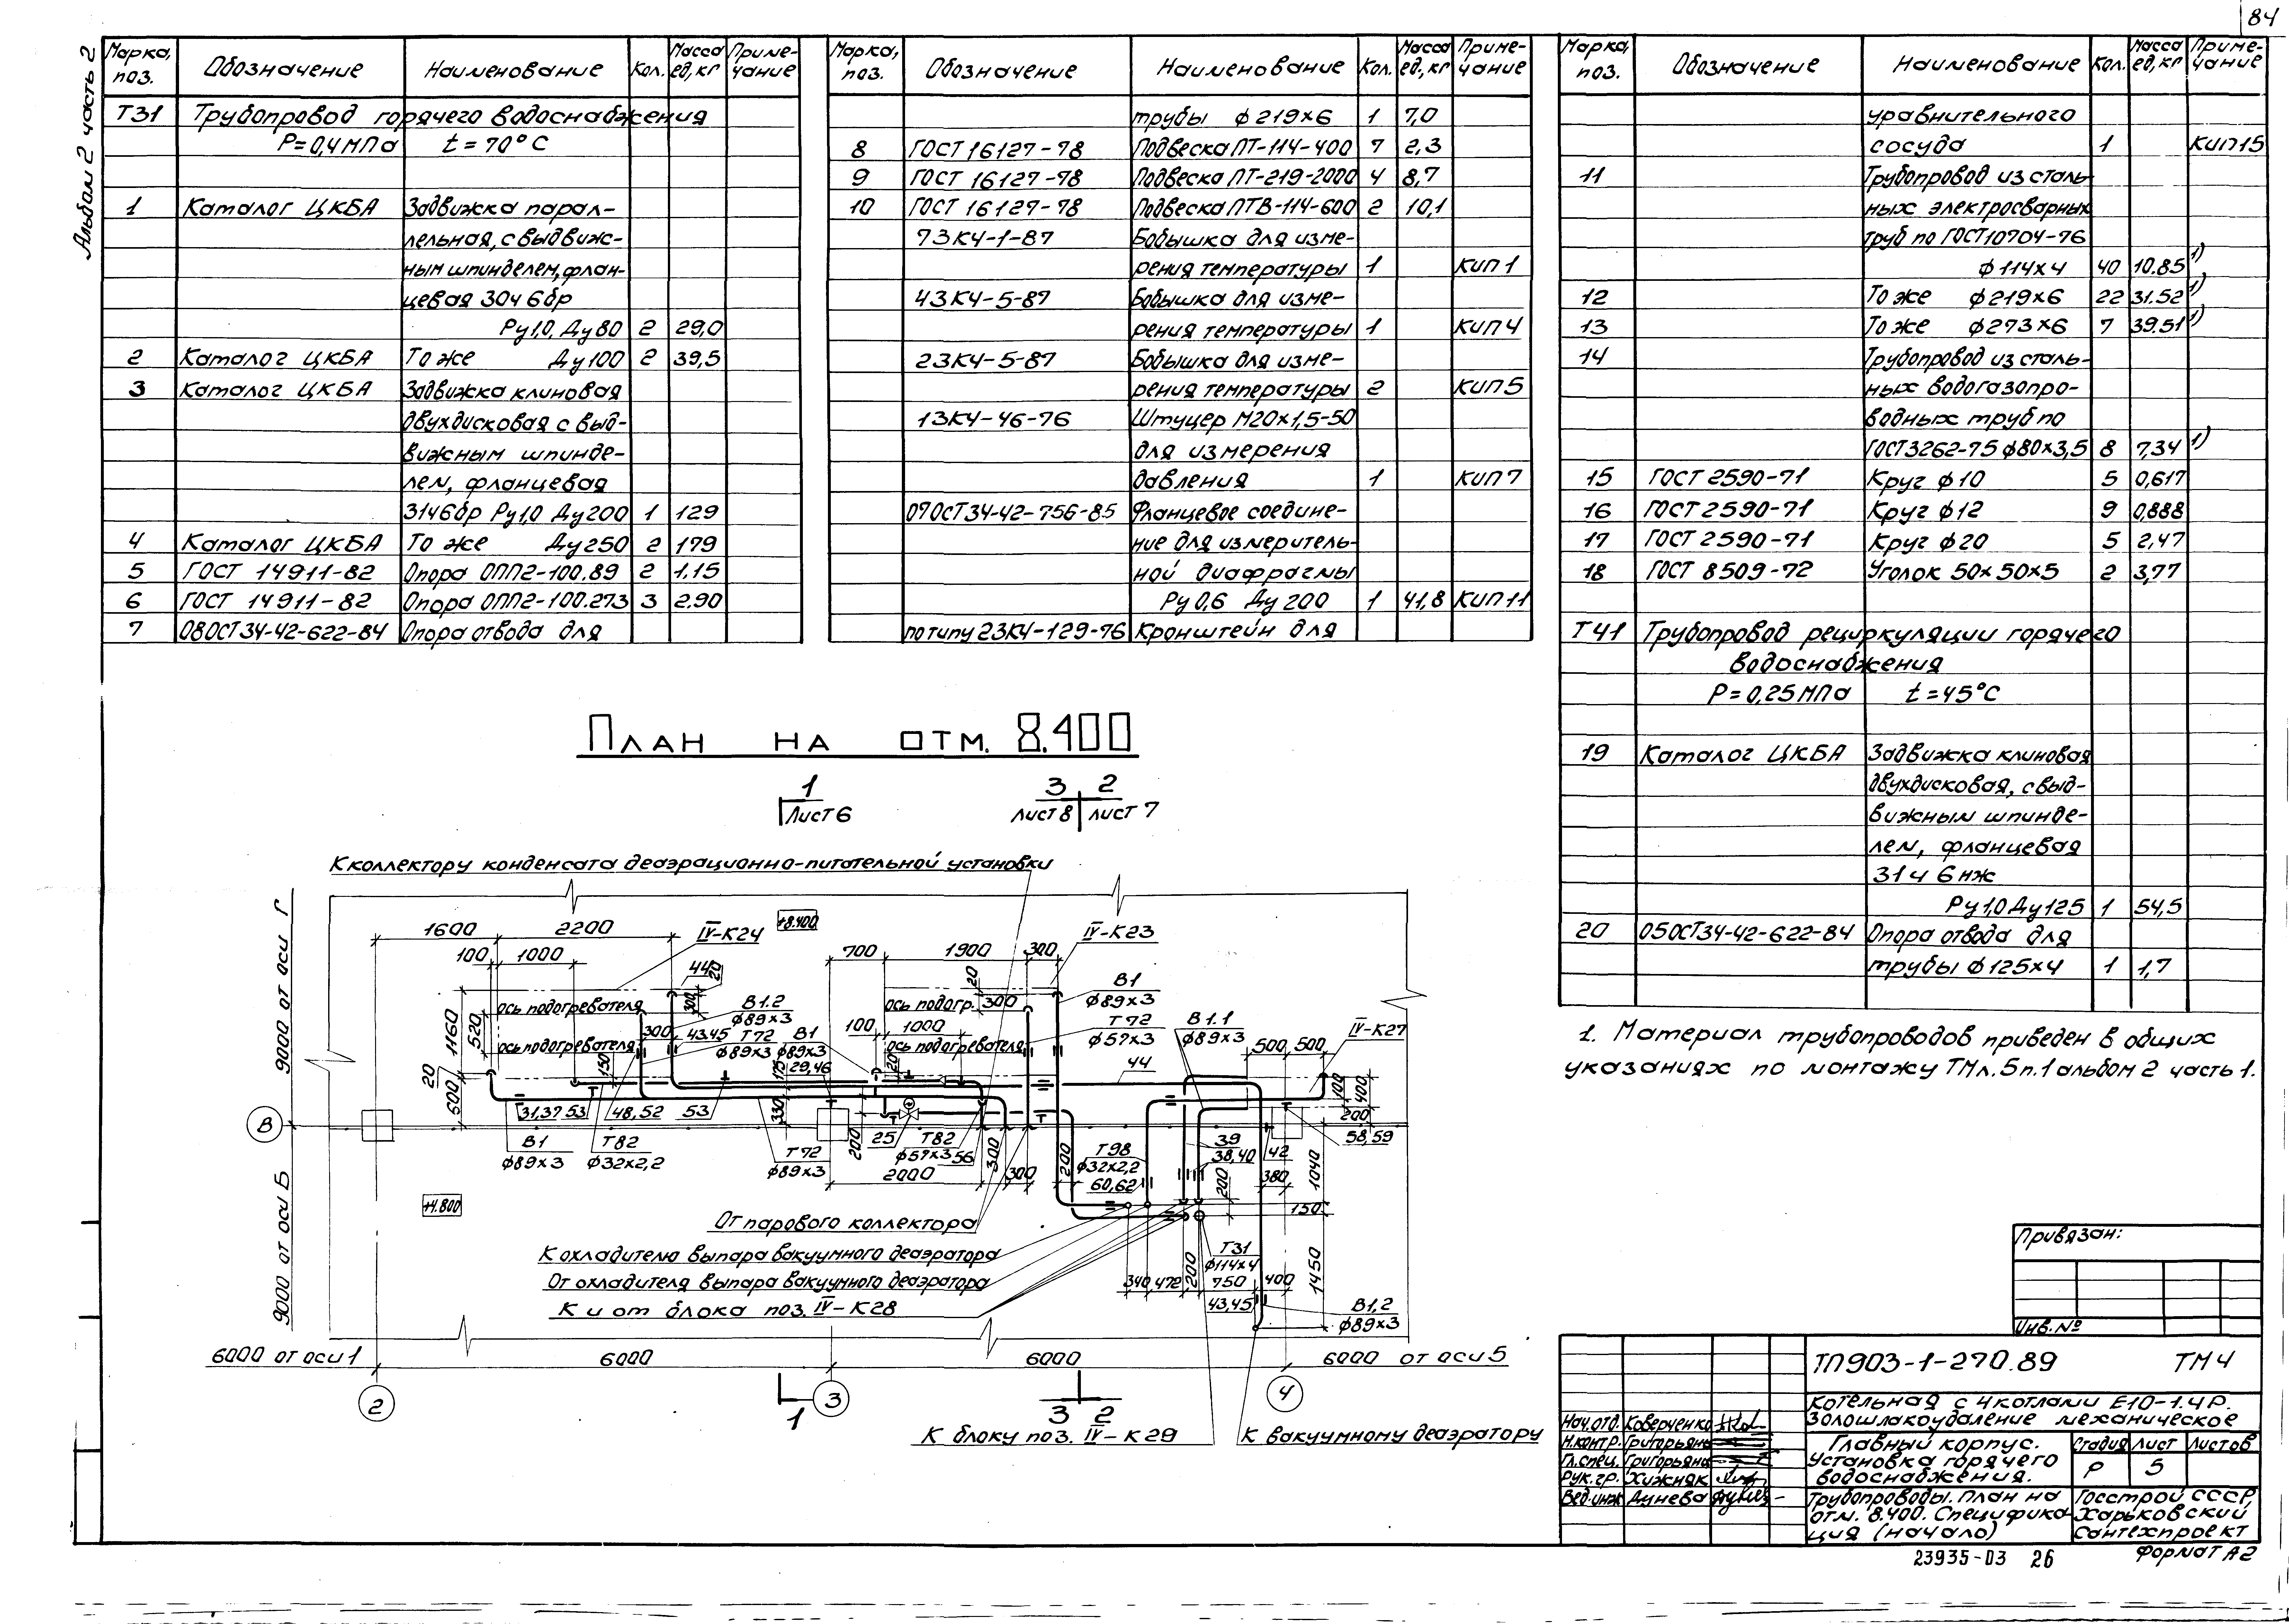 84
Альбом 2 часть 2
Марка, поз. Обозначение Наименование Кол. Масса ед,кг Приме-чание
Т31 Трубопровод горячего водоснабжения
Р=0,4 МПа t=70°С
1 Каталог ЦКБА Задвижка парал-
лельная, с выдвиж-
ным шпинделем, флан-
цевая 30ч 6бр
Ру1,0, Ду80 2 29,0
2 Каталог ЦКБА То же Ду100 2 39,5
3 Каталог ЦКБА Задвижка клиновая
двухдисковая с выд-
вижным шпинде-
лем, фланцевая
31ч6бр Ру1,0 Ду200 1 129
4 Каталог ЦКБА То же Ду250 2 179
5 ГОСТ 14911-82 Опора ОПП2-100.89 2 1.15
6 ГОСТ 14911-82 Опора ОПП2-100.273 3 2.90
7 08ОСТ34-42-622-84 Опора отвода для
Марка, поз. Обозначение Наименование Кол. Масса ед.,кг Приме-чание
трубы ф219х6 1 7,0
8 ГОСТ 16127-78 Подвеска ПТ-114-400 7 2,3
9 ГОСТ 16127-78 Подвеска ПТ-219-2000 4 8,7
10 ГОСТ 16127-78 Подвеска ПТВ-114-600 2 10,1
73К4-1-87 Бобышка для изме-
рения температуры 1 КИП1
43К4-5-87 Бобышка для изме-
рения температуры 1 КИП4
23К4-5-87 Бобышка для изме-
рения температуры 2 КИП5
13К4-46-76 Штуцер М20х1,5-50
для измерения
давления 1 КИП7
07ОСТ34-42-756-85 Фланцевое соедине-
ние для измеритель-
ной диафрагмы
Ру0,6 Ду200 1 41,8 КИП11
по типу 23К4-129-76 Кронштейн для
Марка, поз. Обозначение Наименование Кол. Масса ед,кг Приме-чание
уравнительного
сосуда 1 КИП15
11 Трубопровод из сталь-
ных электросварных
труб по ГОСТ10704-76
ф114х4 40 10.85 1)
12 То же ф219х6 22 31.52 1)
13 То же ф273х6 7 39.51 1)
14 Трубопровод из сталь-
ных водогазопро-
водных труб по
ГОСТ3262-75 ф80х3,5 8 7,34 1)
15 ГОСТ 2590-71 Круг ф10 5 0,617
16 ГОСТ 2590-71 Круг ф12 9 0,888
17 ГОСТ 2590-71 Круг ф20 5 2,47
18 ГОСТ 8509-72 Уголок 50х50х5 2 3,77
Т41 Трубопровод рециркуляции горячего
водоснабжения
Р=0,25МПа t=45°С
19 Каталог ЦКБА Задвижка клиновая
двухдисковая, с выд-
вижным шпинде-
лем, фланцевая
31ч 6нж
Ру1,0 Ду125 1 54,5
20 05ОСТ34-42-622-84 Опора отвода для
трубы ф125х4 1 1,7
1. Материал трубопроводов приведен в общих
указаниях по монтажу ТМл.5п.1 альбом 2 часть 1.
План на отм. 8.400
1 Лист 6
3 2
лист 8 лист 7
К коллектору конденсата деаэрационно-питательной установки
9000 от оси Г
9000 от оси Б
1600 2200 IV-К24 +8.400 700 1900 300 IV-К23
100 1000 44 20 300 20
ось подогревателя В1.2 ф89х3 ось подогр. 300 В1 ф89х3
1160 520 300 43,45 Т72 ф89х3 В1 ф89х3 100 1000 Т72 ф57х3 В1.1 ф89х3 IV-К27
ось подогревателя ось подогревателя 500 500
20 600 150 175 29,46 20 44 100 400
31,37 53 48,52 53 330 200 200
В
В1 ф89х3 Т82 ф32х2,2 Т72 ф89х3 25 Т82 ф57х3 56 300 200 Т98 ф32х2,2 39 38,40 42 58,59
2000 300 60,62 200 380 1040
+4.800
150
От парового коллектора
К охладителю выпара вакуумного деаэратора
От охладителя выпара вакуумного деаэратора
К и от блока поз. IV-К28
Т31 ф114х4
340 472 200 750 400 1450
43,45 В1,2 ф89х3
6000 от оси 1 6000 6000 6000 от оси 5
2 3 4
1 3 2
К блоку поз. IV-К29 К вакуумному деаэратору
Привязан:
Инв.№
ТП903-1-270.89 ТМ4
Котельная с 4 котлами Е10-1.4Р.
Золошлакоудаление механическое
Нач.отд. Коверченко
Н.контр. Григорьянц
Гл.спец. Григорьянц
Рук.гр. Хижняк
Вед.инж Дунева
Главный корпус.
Установка горячего
водоснабжения.
Стадия Лист Листов
Р 5
Трубопроводы. План на
отм. 8.400. Специфика-
ция (начало)
Госстрой СССР,
Харьковский
Сантехпроект
23935-03 26 Формат А2